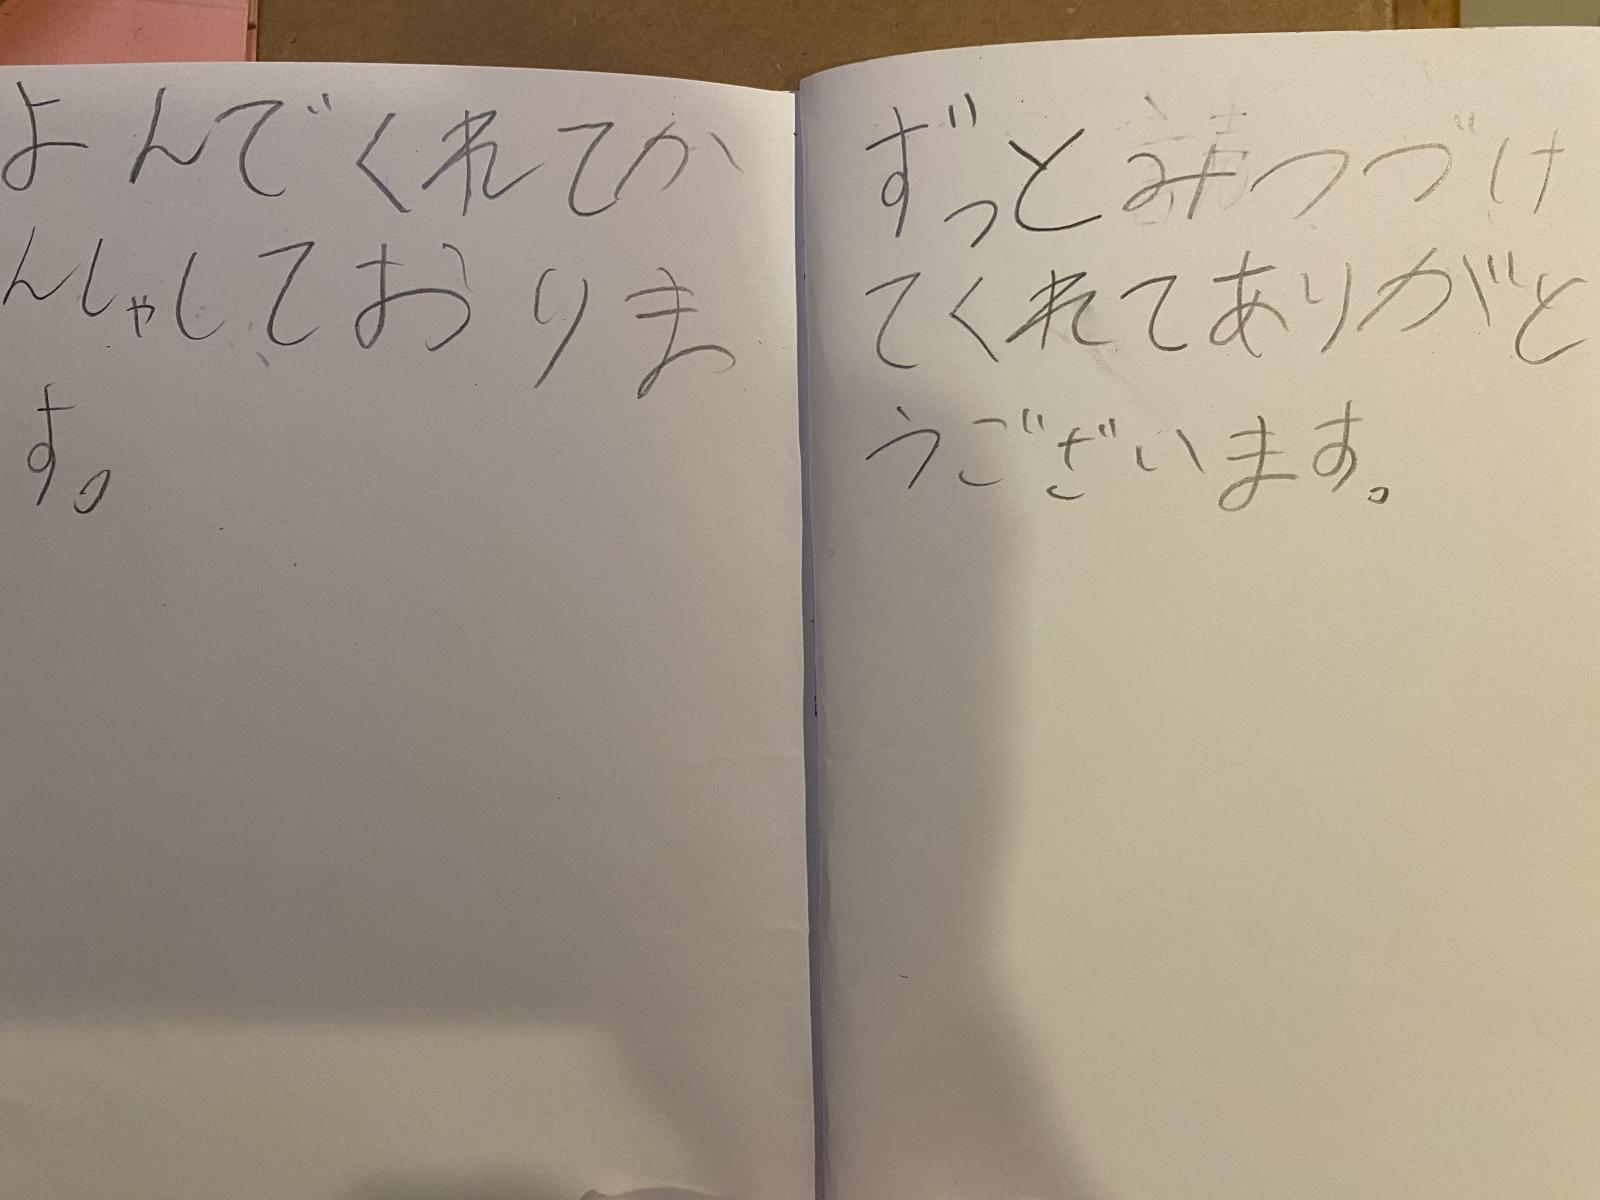 よんでくれてか
んしゃしておりま
す。
ずっとみつづけ
てくれてありがと
うございます。